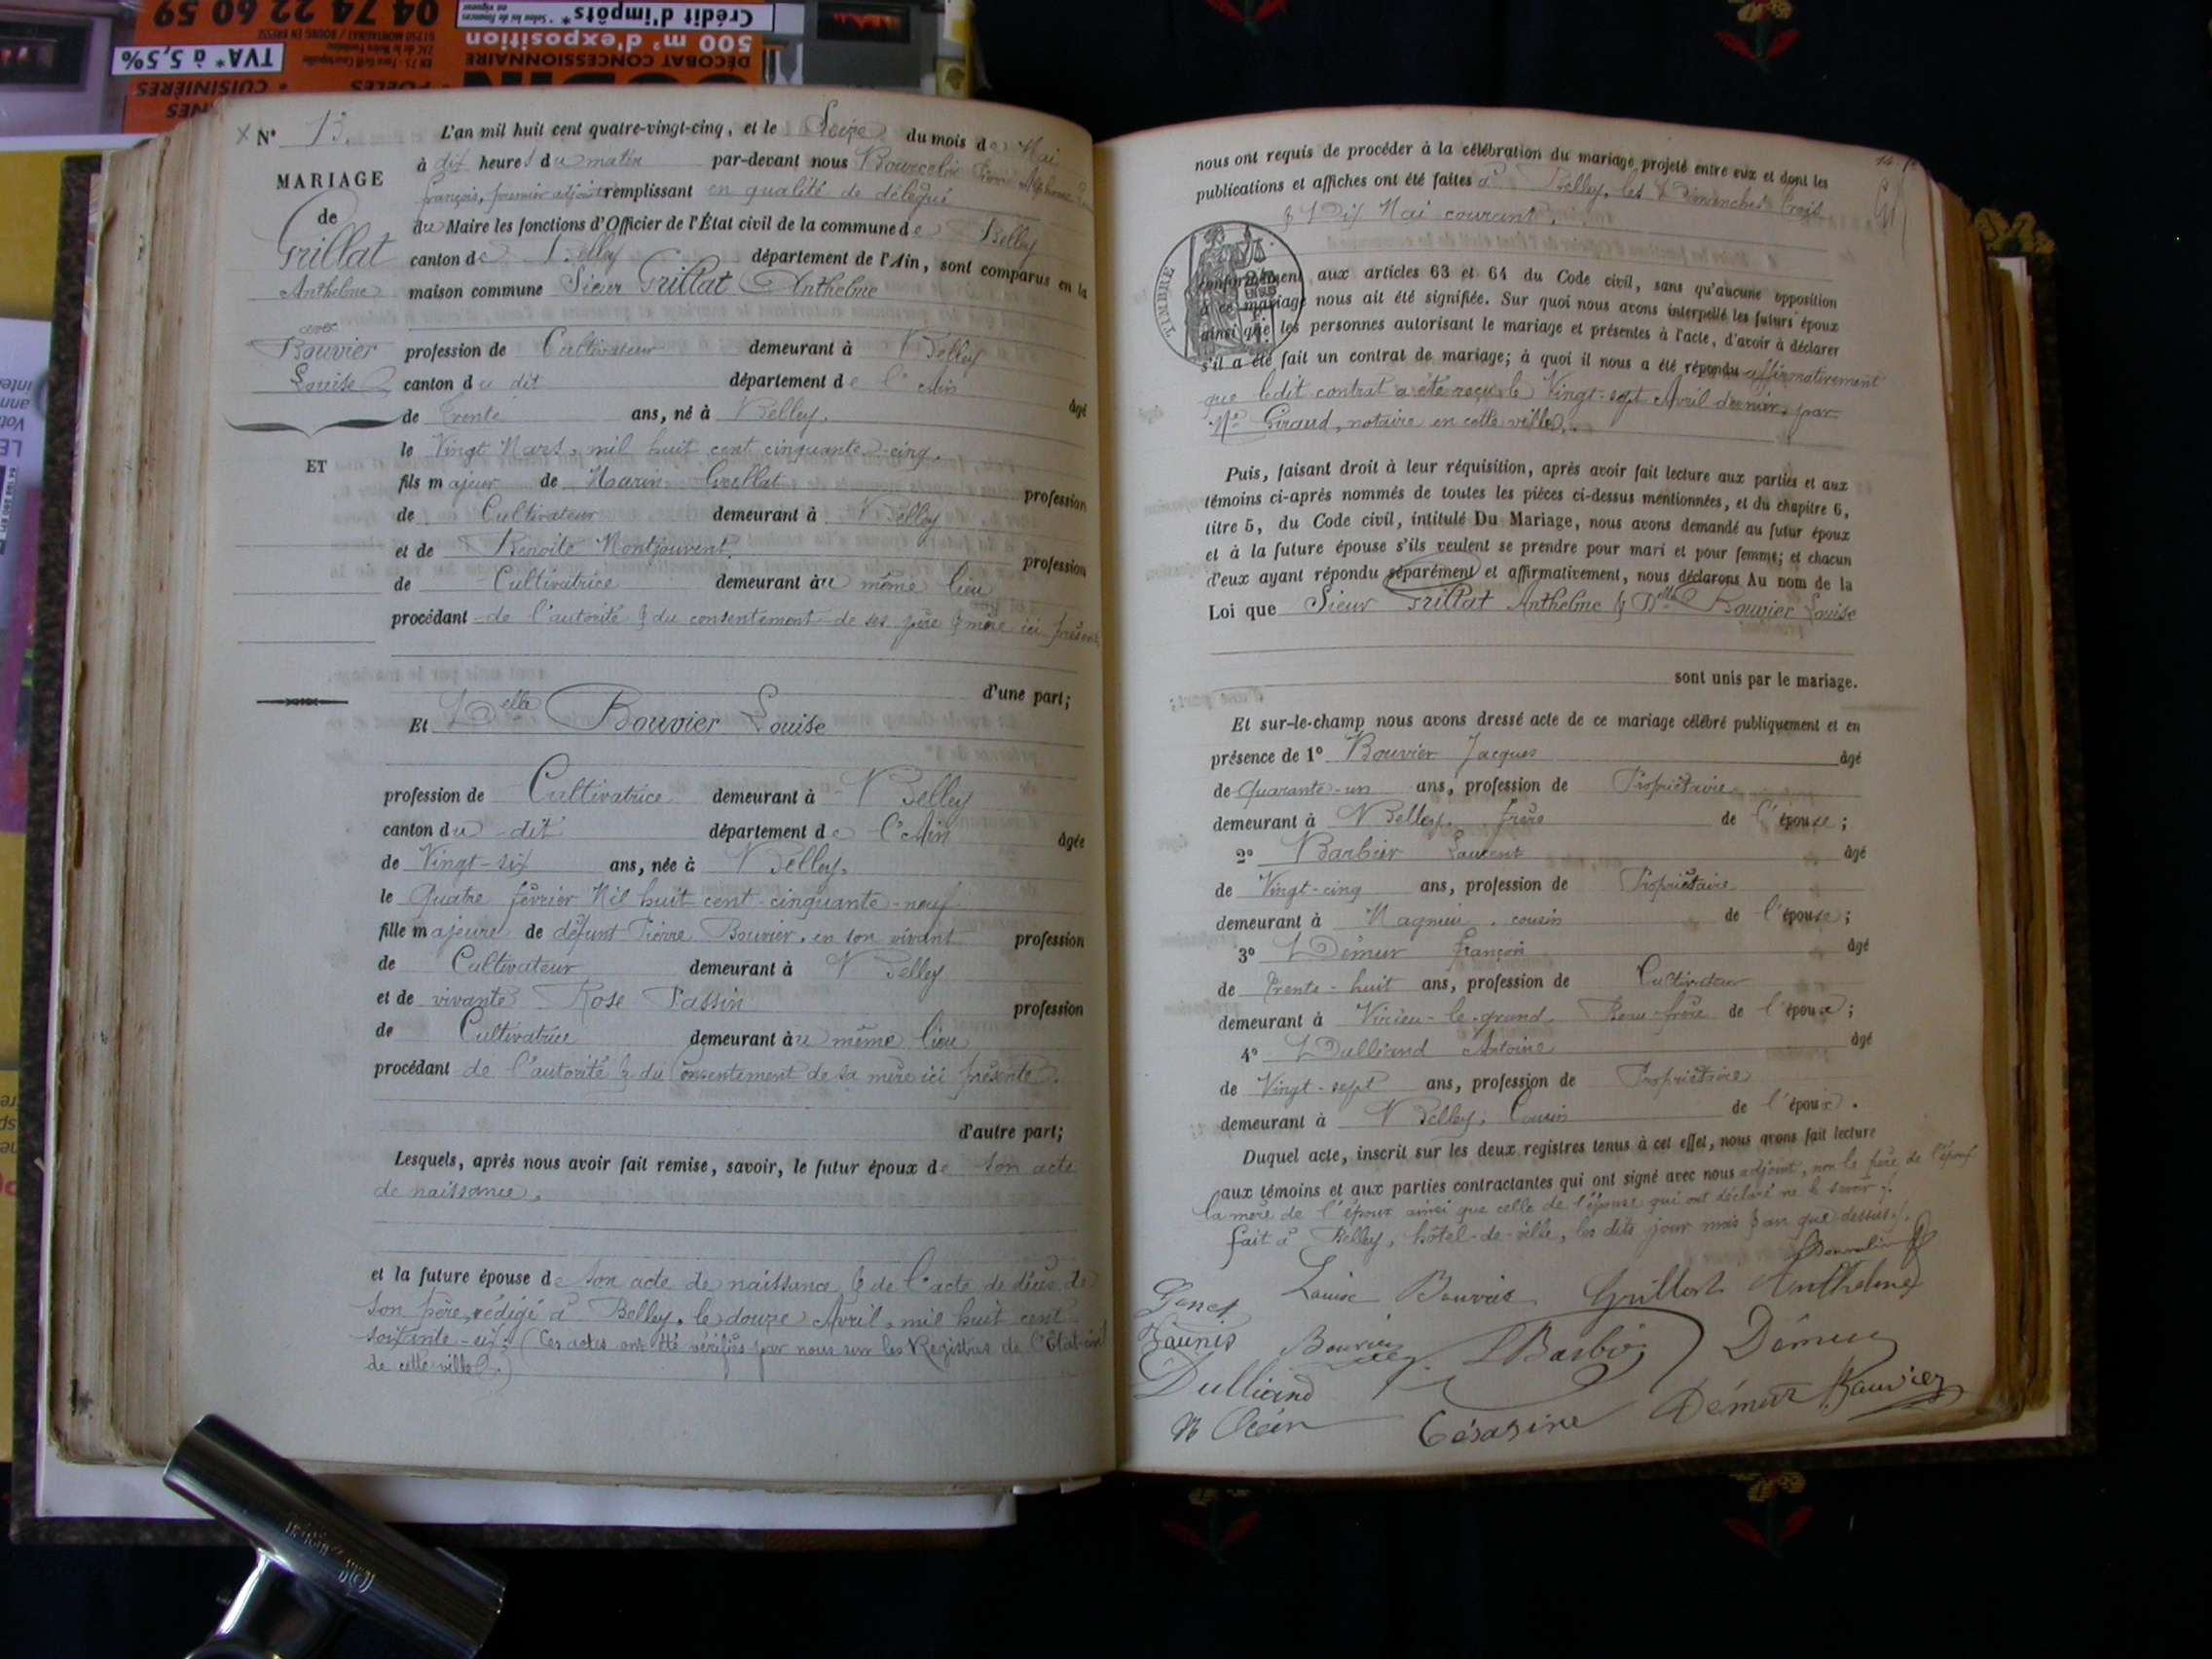 04 74 22 60 59
Crédit d'impôts*
500 m² d'exposition
DÉCOBAT CONCESSIONNAIRE
TVA* à 5,5%
CUISINIÈRES
POELES
N° 13.
MARIAGE
de
Grillat
Anthelme
avec
Bouvier
Louise
ET
L'an mil huit cent quatre-vingt-cinq, et le Seize du mois de Mai
à dix heures du matin par-devant nous Bourcelin
françois, premier adjoint remplissant en qualité de délégué
du Maire les fonctions d'Officier de l'État civil de la commune de Belley
canton de Belley département de l'Ain, sont comparus en la
maison commune Sieur Grillat Anthelme
profession de Cultivateur demeurant à Belley
canton du dit département de l'Ain âgé
de trente ans, né à Belley.
le Vingt Mars, mil huit cent cinquante-cinq.
fils majeur de Marin Grillat profession
de Cultivateur demeurant à Belley
et de Benoite Montjouvent. profession
de Cultivatrice demeurant au même lieu
procédant de l'autorité & du consentement de ses père & mère ici présents
d'une part;
Et Delle Bouvier Louise
profession de Cultivatrice demeurant à Belley
canton du dit département de l'Ain âgée
de Vingt-six ans, née à Belley.
le Quatre février Mil huit cent cinquante-neuf
fille majeure de défunt Pierre Bouvier, en son vivant profession
de Cultivateur demeurant à Belley
et de vivante Rose Passin profession
de Cultivatrice demeurant au même lieu
procédant de l'autorité & du Consentement de sa mère ici présente.
d'autre part;
Lesquels, après nous avoir fait remise, savoir, le futur époux de son acte
de naissance.
et la future épouse de son acte de naissance & de l'acte de décès de
son père, rédigé à Belley, le douze Avril, mil huit cent
soixante-six. (Ces actes ont été vérifiés par nous sur les Registres de l'Etat-civil
de cette ville.)
nous ont requis de procéder à la célébration du mariage projeté entre eux et dont les
publications et affiches ont été faites à Belley, les Dimanches trois
& Dix Mai courant.
TIMBRE
conformément aux articles 63 et 64 du Code civil, sans qu'aucune opposition
à ce mariage nous ait été signifiée. Sur quoi nous avons interpellé les futurs époux
ainsi que les personnes autorisant le mariage et présentes à l'acte, d'avoir à déclarer
s'il a été fait un contrat de mariage; à quoi il nous a été répondu affirmativement
que ledit contrat a été reçu le Vingt-sept Avril dernier, par
Me Giraud, notaire en cette ville.
Puis, faisant droit à leur réquisition, après avoir fait lecture aux parties et aux
témoins ci-après nommés de toutes les pièces ci-dessus mentionnées, et du chapitre 6,
titre 5, du Code civil, intitulé Du Mariage, nous avons demandé au futur époux
et à la future épouse s'ils veulent se prendre pour mari et pour femme; et chacun
d'eux ayant répondu séparément et affirmativement, nous déclarons Au nom de la
Loi que Sieur Grillat Anthelme & Delle Bouvier Louise
sont unis par le mariage.
Et sur-le-champ nous avons dressé acte de ce mariage célébré publiquement et en
présence de 1° Bouvier Jacques âgé
de Quarante-un ans, profession de Propriétaire
demeurant à Belley, frère de l'épouse;
2° Barbier Laurent âgé
de Vingt-cinq ans, profession de Propriétaire
demeurant à Magnieu, cousin de l'épouse;
3° Démeur François âgé
de Trente-huit ans, profession de Cultivateur
demeurant à Virieu-le-grand, Beau-frère de l'époux;
4° Dulliand Antoine âgé
de Vingt-sept ans, profession de Propriétaire
demeurant à Belley, Cousin de l'époux.
Duquel acte, inscrit sur les deux registres tenus à cet effet, nous avons fait lecture
aux témoins et aux parties contractantes qui ont signé avec nous adjoint, non le père de l'époux
la mère de l'époux ainsi que celle de l'épouse qui ont déclaré ne le savoir.
fait à Belley, hôtel-de-ville, les dits jour mois & an que dessus.
Louise Bouvier Grillat Anthelme
Bouvier LBarbier Démeur
Dulliand
Césarine Démeur Bouvier